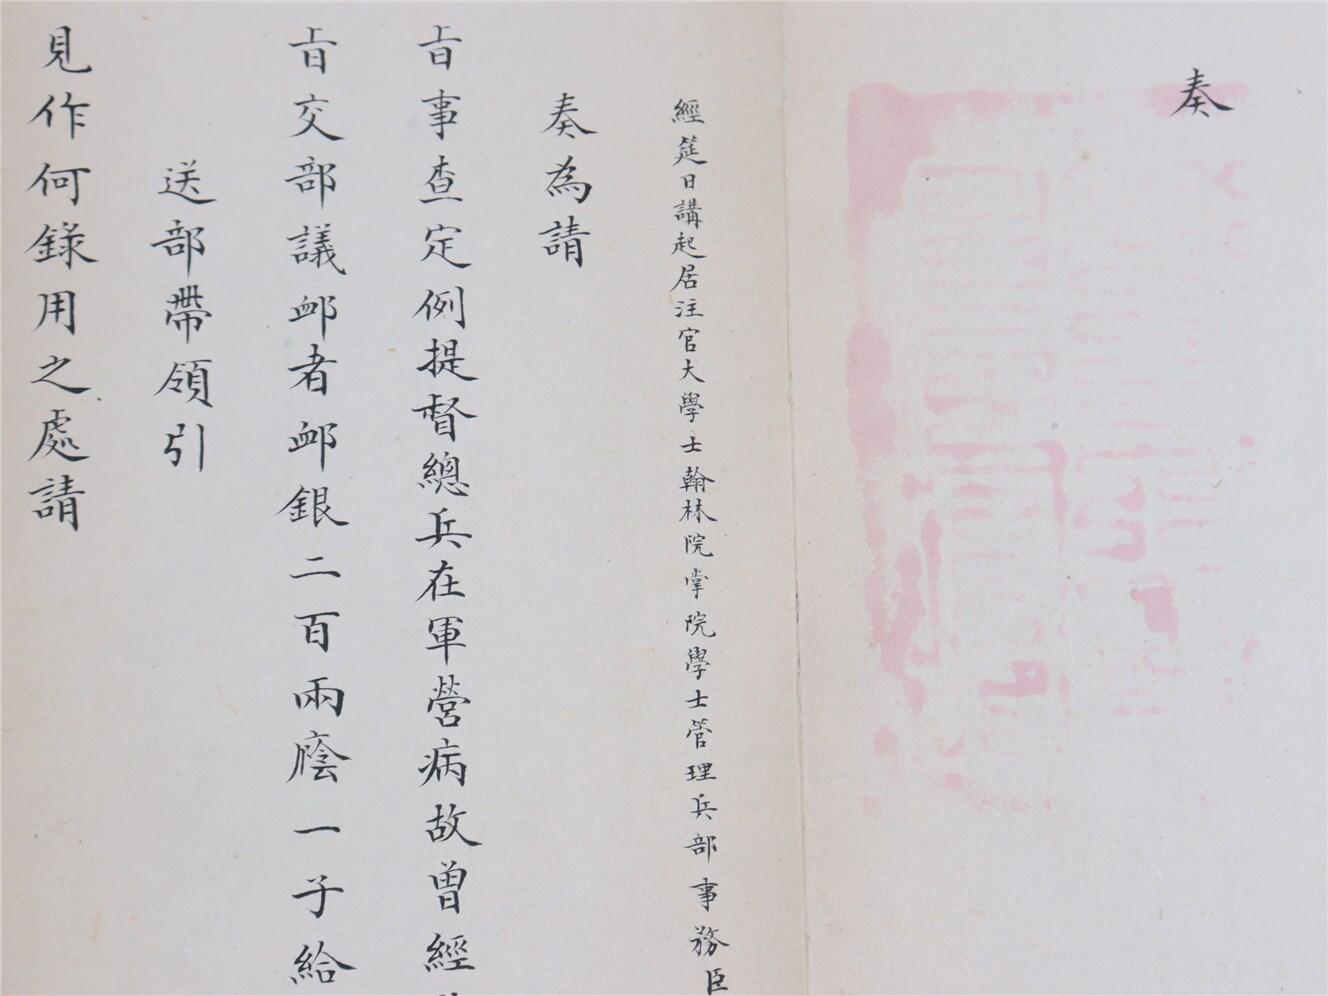 奏
經筵日講起居注官大學士翰林院掌院學士管理兵部事務臣
奏為請
旨事查定例提督總兵在軍營病故曾經
旨交部議卹者卹銀二百兩廕一子給
送部帶領引
見作何錄用之處請